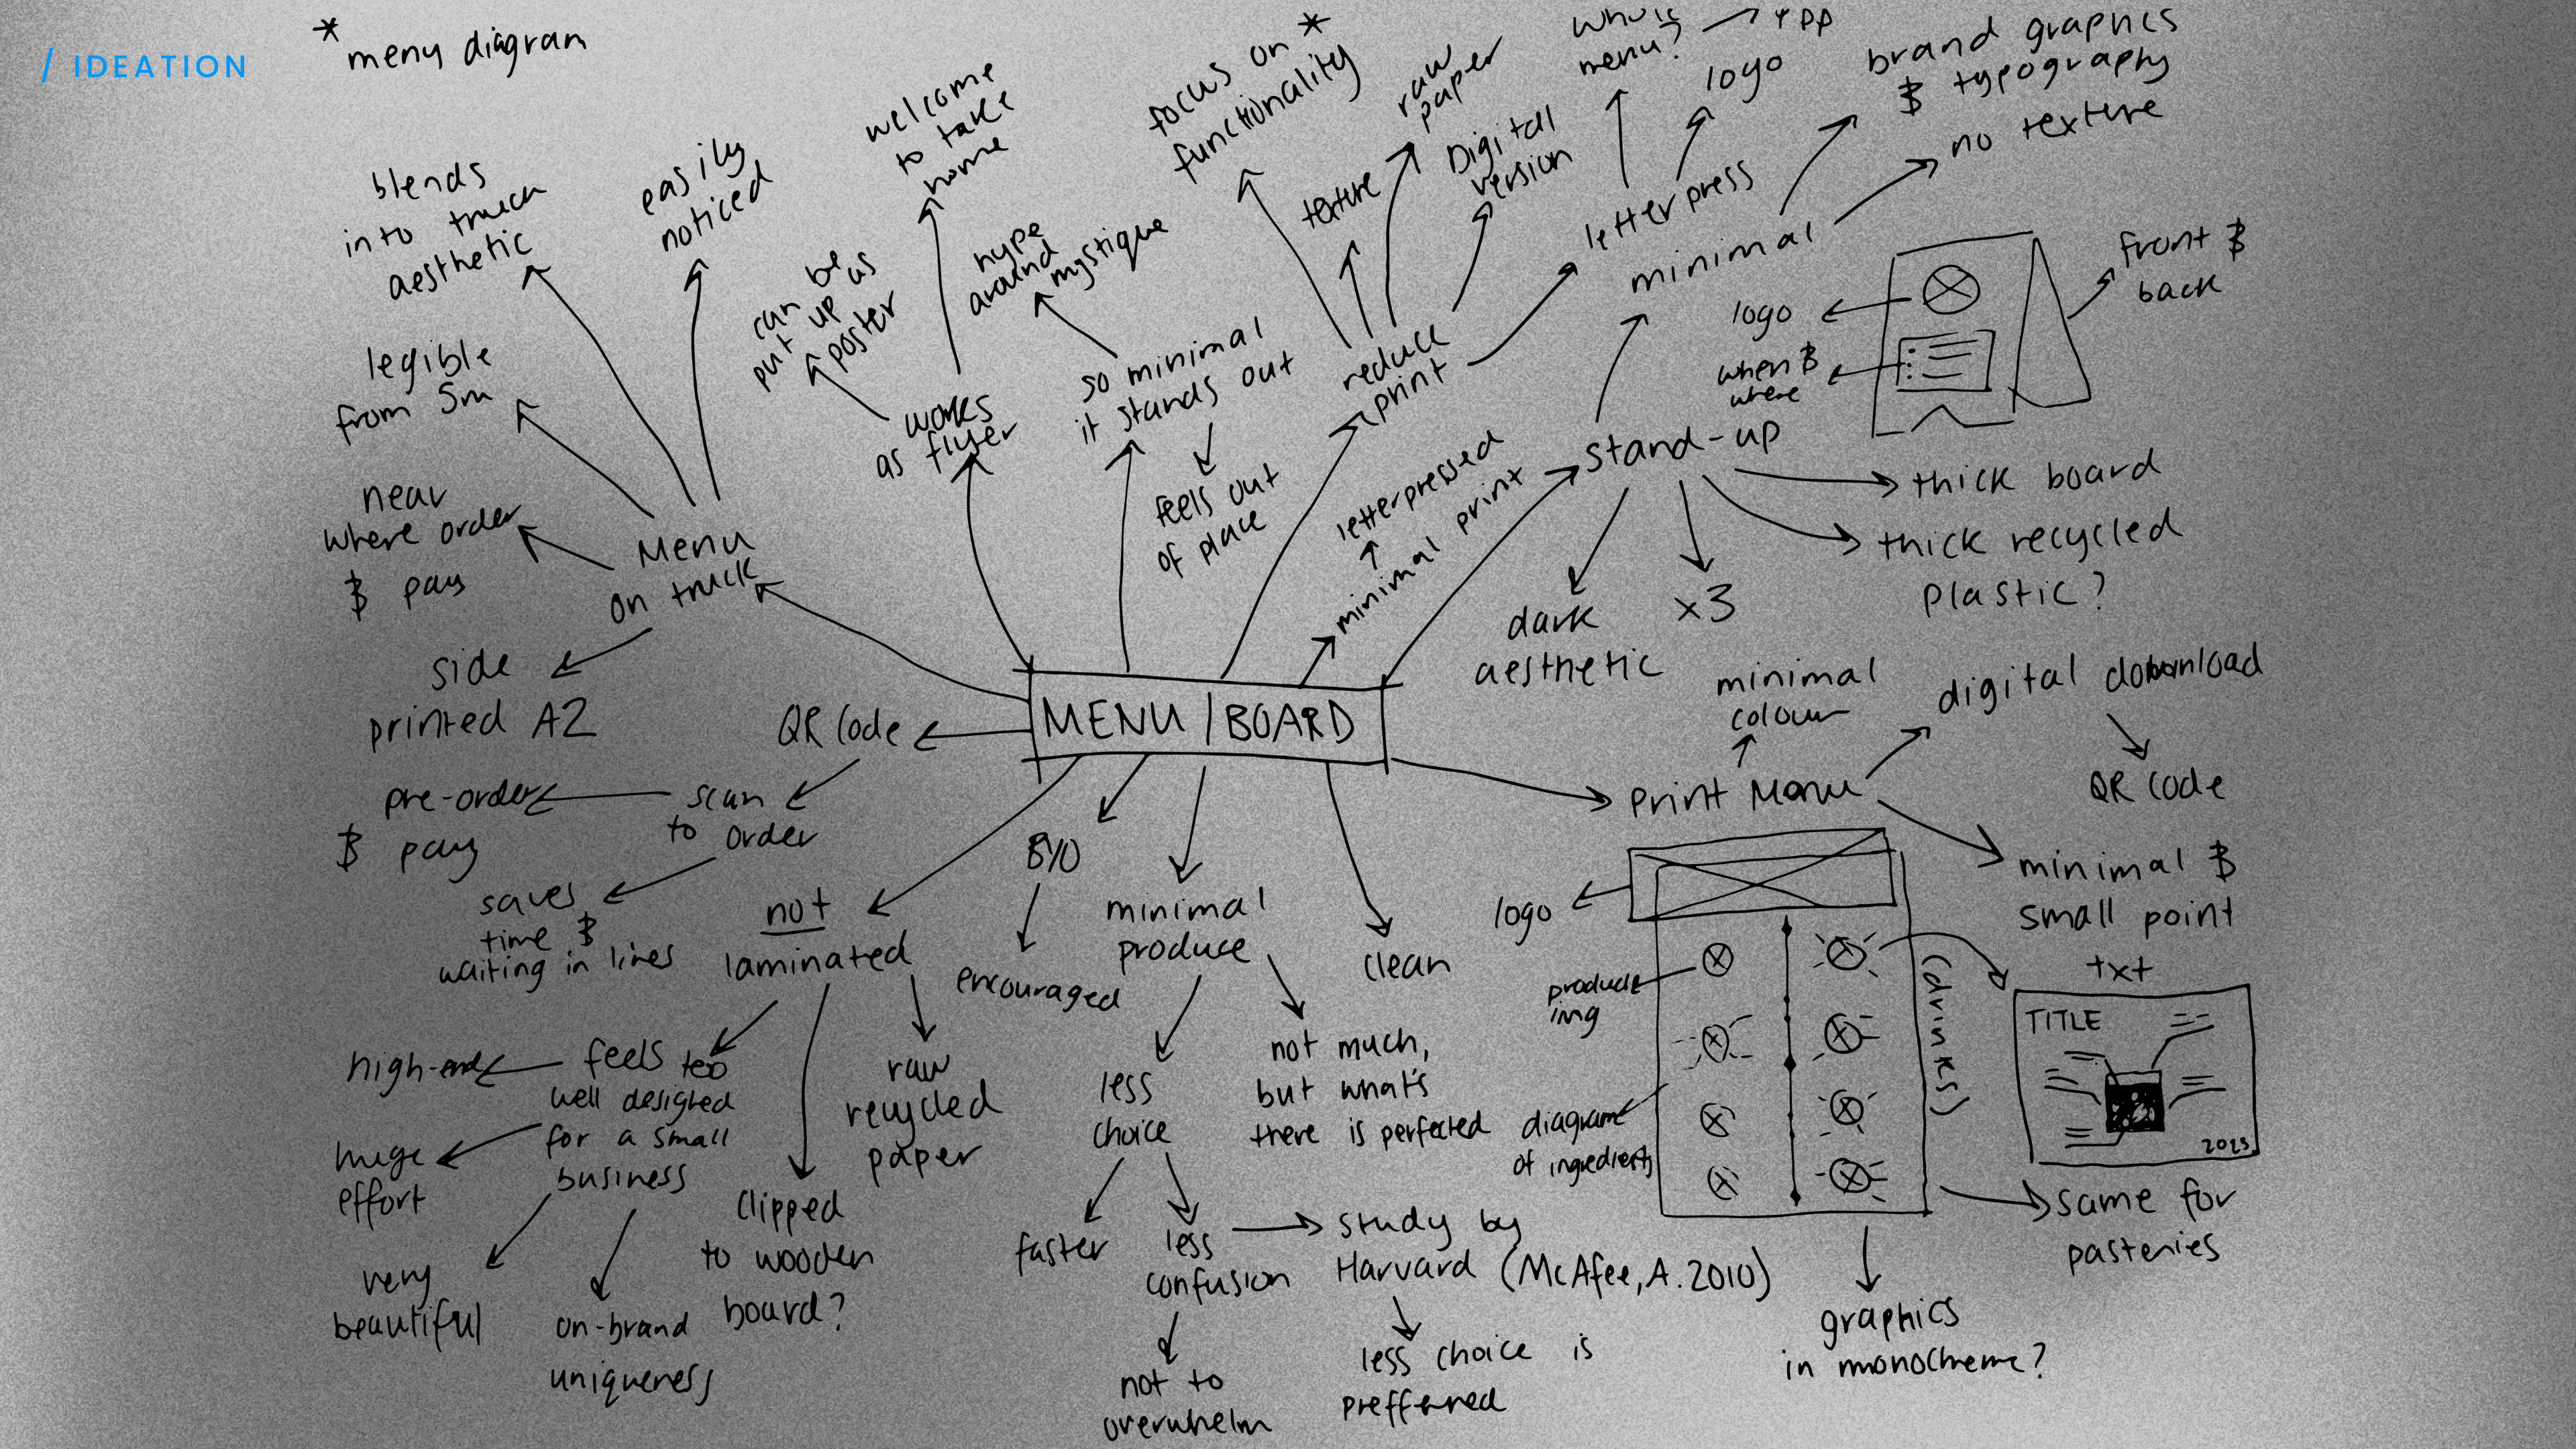 / IDEATION
* meny diagram
blends
into truck
aesthetic
easily
noticed
welcome
to take
home
focus on *
functionality
raw
paper
menu?
logo
brand graphics
& typography
no texture
legible
from 5m
can be
put up as
poster
hype
around
mystique
texture
Digital
version
letterpress
minimal
front &
back
logo
when &
where
near
where order
& pay
Menu
on truck
works
as flyer
so minimal
it stands out
feels out
of place
reduce
print
letterpressed
minimal print
stand-up
thick board
thick recycled
plastic?
dark
aesthetic
x3
side
printed A2
MENU/BOARD
QR Code
scan
to order
pre-order
& pay
saves
time &
waiting in lines
not
laminated
feels too
well designed
for a small
business
high-end
huge
effort
very
beautiful
on-brand
uniqueness
clipped
to wooden
board?
raw
recycled
paper
BYO
encouraged
minimal
produce
less
choice
faster
less
confusion
not to
overwhelm
study by
Harvard (McAfee, A. 2010)
less choice is
prefferred
not much,
but what's
there is perfected
clean
print Menu
minimal
colour
digital download
QR Code
minimal &
small point
txt
logo
product
img
diagram
of ingredients
(drinks)
TITLE
2023
same for
pasteries
graphics
in monochrome?